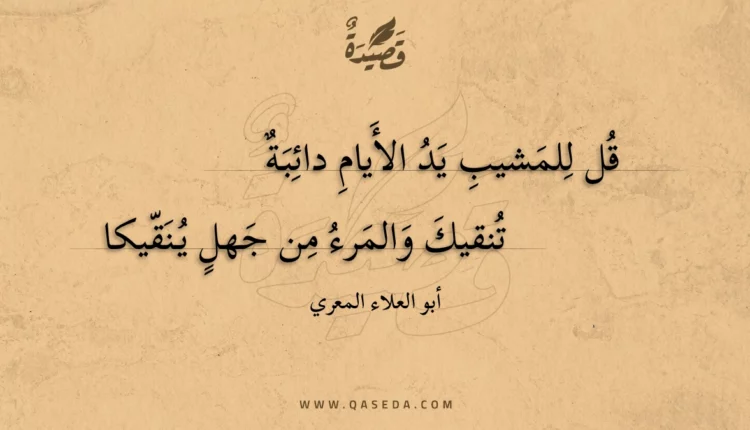 قَصِيْدَةٌ
قُل لِلمَشيبِ يَدُ الأَيامِ دائِبَةٌ
تُنقيكَ وَالمَرءُ مِن جَهلٍ يُنَقّيكا
أبو العلاء المعري
WWW.QASEDA.COM